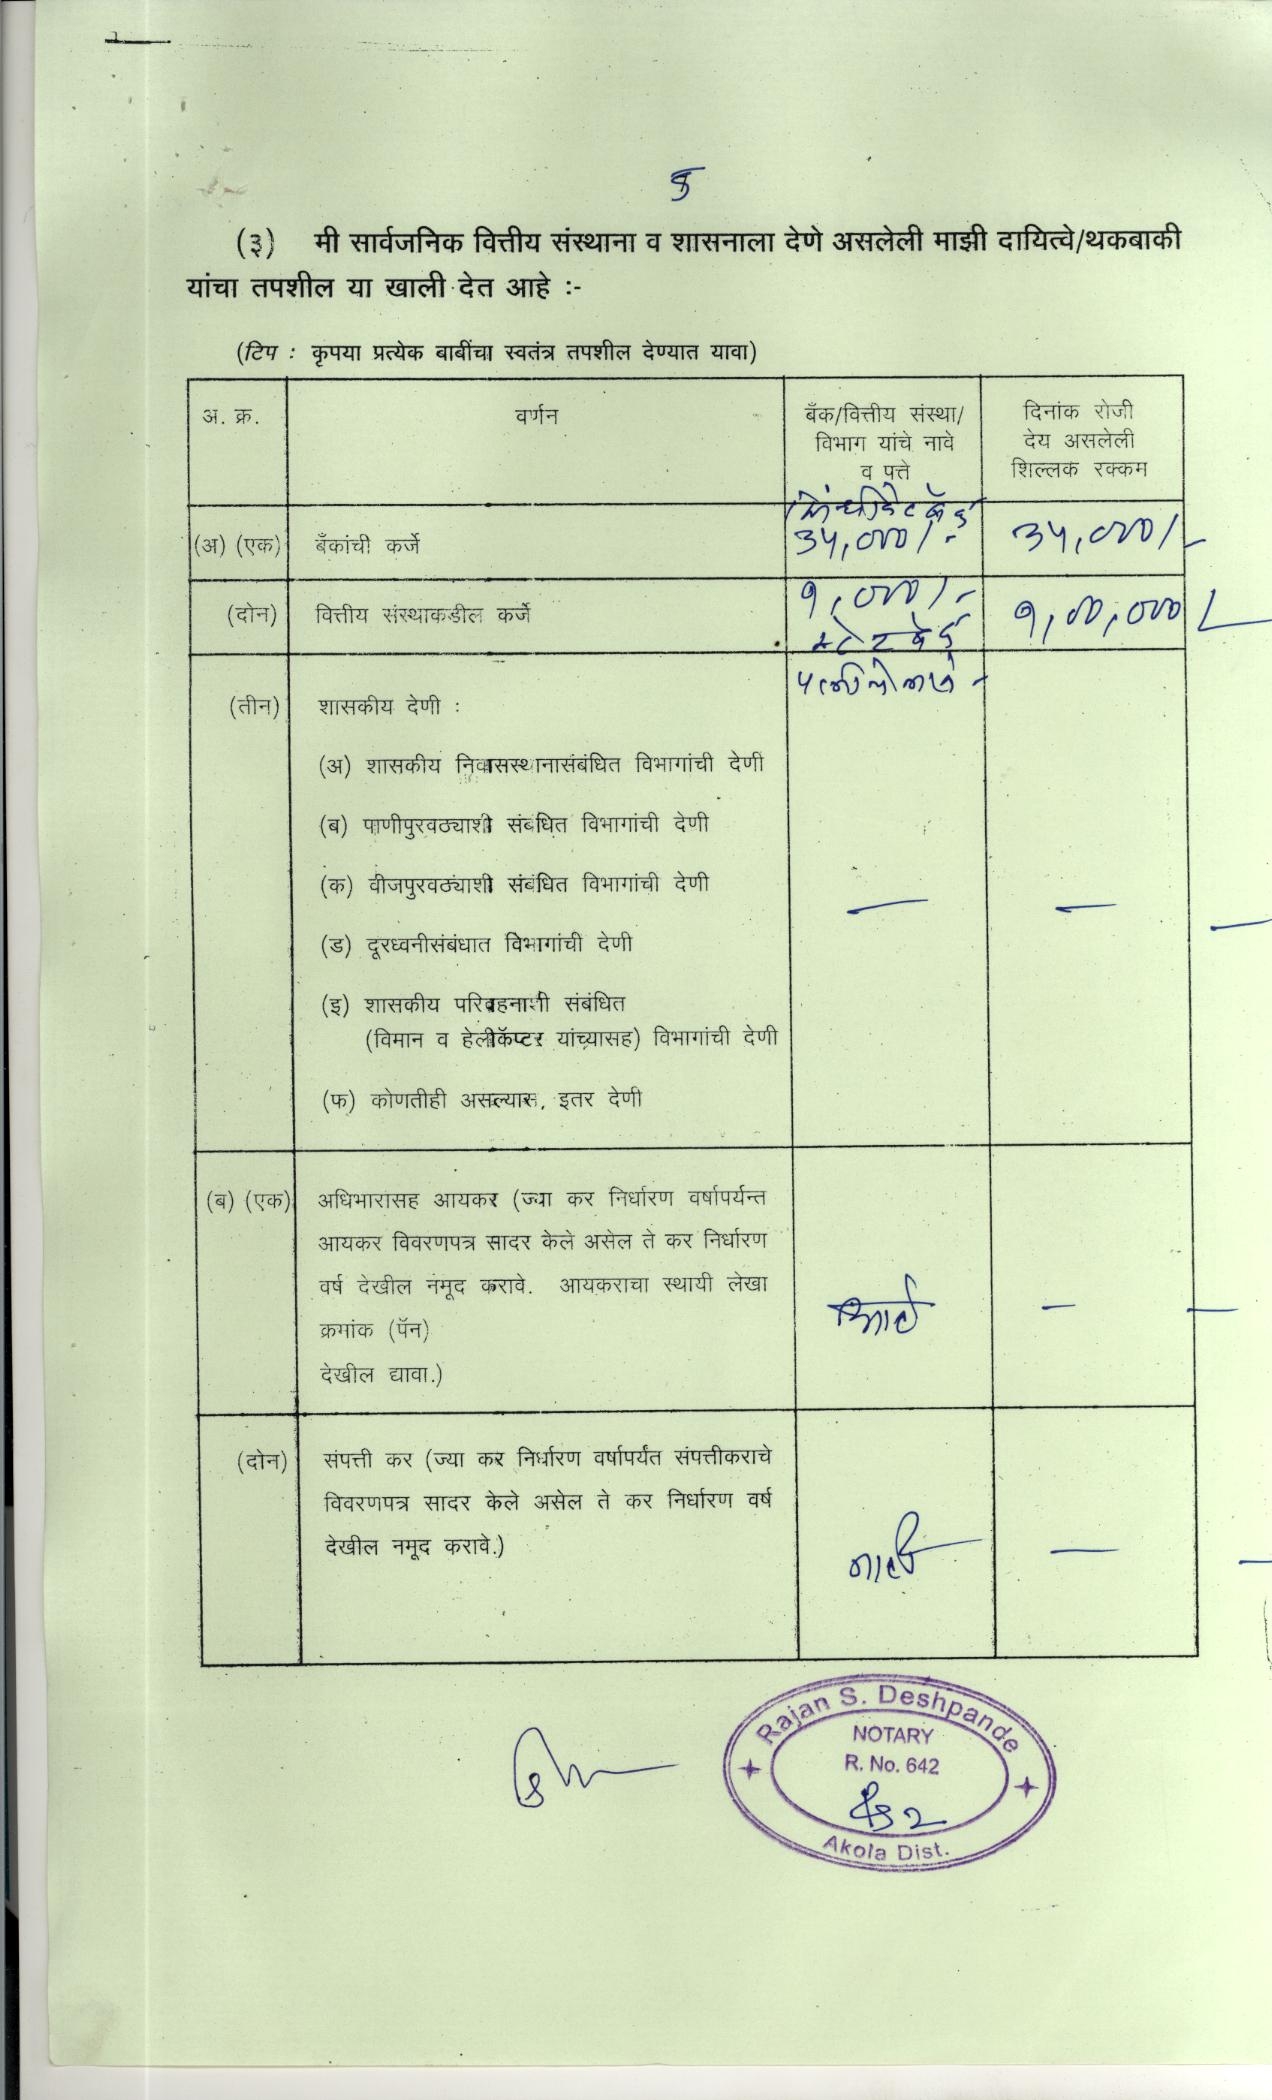 (३) मी सार्वजनिक वित्तीय संस्थाना व शासनाला देणे असलेली माझी दायित्वे/थकबाकी
यांचा तपशील या खाली देत आहे :-
(टिप : कृपया प्रत्येक बाबींचा स्वतंत्र तपशील देण्यात यावा)
अ. क्र.
वर्णन
बँक/वित्तीय संस्था/
विभाग यांचे नावे
व पत्ते
दिनांक रोजी
देय असलेली
शिल्लक रक्कम
(अ) (एक) बँकांची कर्जे
३५,०००/-
३५,०००/-
(दोन) वित्तीय संस्थाकडील कर्जे
१,००,०००
(तीन) शासकीय देणी :
(अ) शासकीय निवासस्थानासंबंधित विभागांची देणी
(ब) पाणीपुरवठ्याशी संबंधित विभागांची देणी
(क) वीजपुरवठ्याशी संबंधित विभागांची देणी
(ड) दूरध्वनीसंबंधात विभागांची देणी
(इ) शासकीय परिवहनाशी संबंधित
(विमान व हेलीकॅप्टर यांच्यासह) विभागांची देणी
(फ) कोणतीही असल्यास, इतर देणी
(ब) (एक) अधिभारासह आयकर (ज्या कर निर्धारण वर्षापर्यन्त
आयकर विवरणपत्र सादर केले असेल ते कर निर्धारण
वर्ष देखील नमूद करावे. आयकराचा स्थायी लेखा
क्रमांक (पॅन)
देखील द्यावा.)
(दोन) संपत्ती कर (ज्या कर निर्धारण वर्षापर्यंत संपत्तीकराचे
विवरणपत्र सादर केले असेल ते कर निर्धारण वर्ष
देखील नमूद करावे.)
नाही
Rajan S. Deshpande
NOTARY
R. No. 642
Akola Dist.